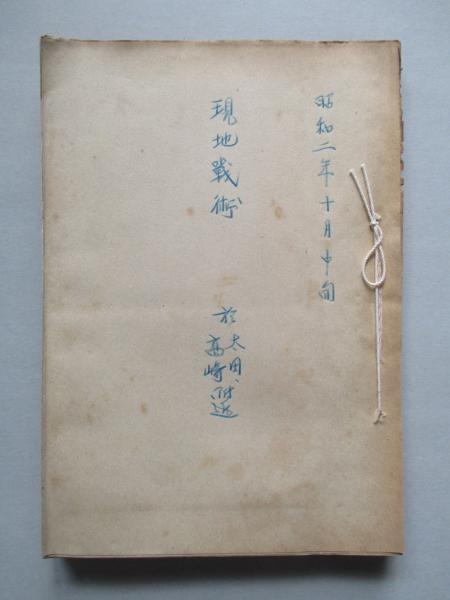 昭和二年十月中旬
現地戰術
於太田、
高崎附近